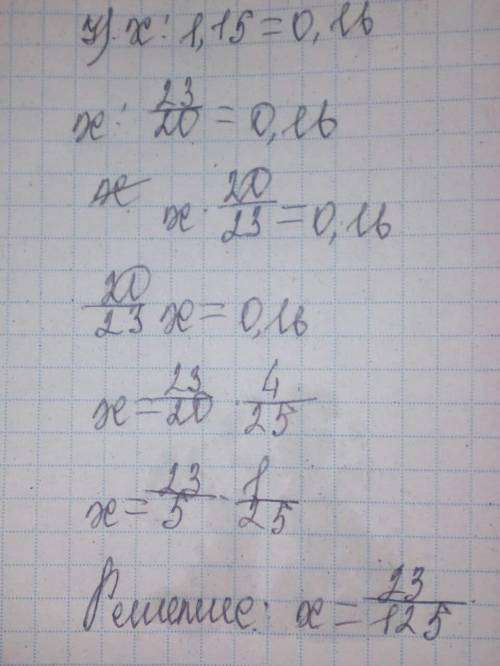 4) x : 1,15 = 0,16
x : 23/20 = 0,16
x · 20/23 = 0,16
20/23 x = 0,16
x = 23/20 · 4/25
x = 23/5 · 1/25
Решение: x = 23/125